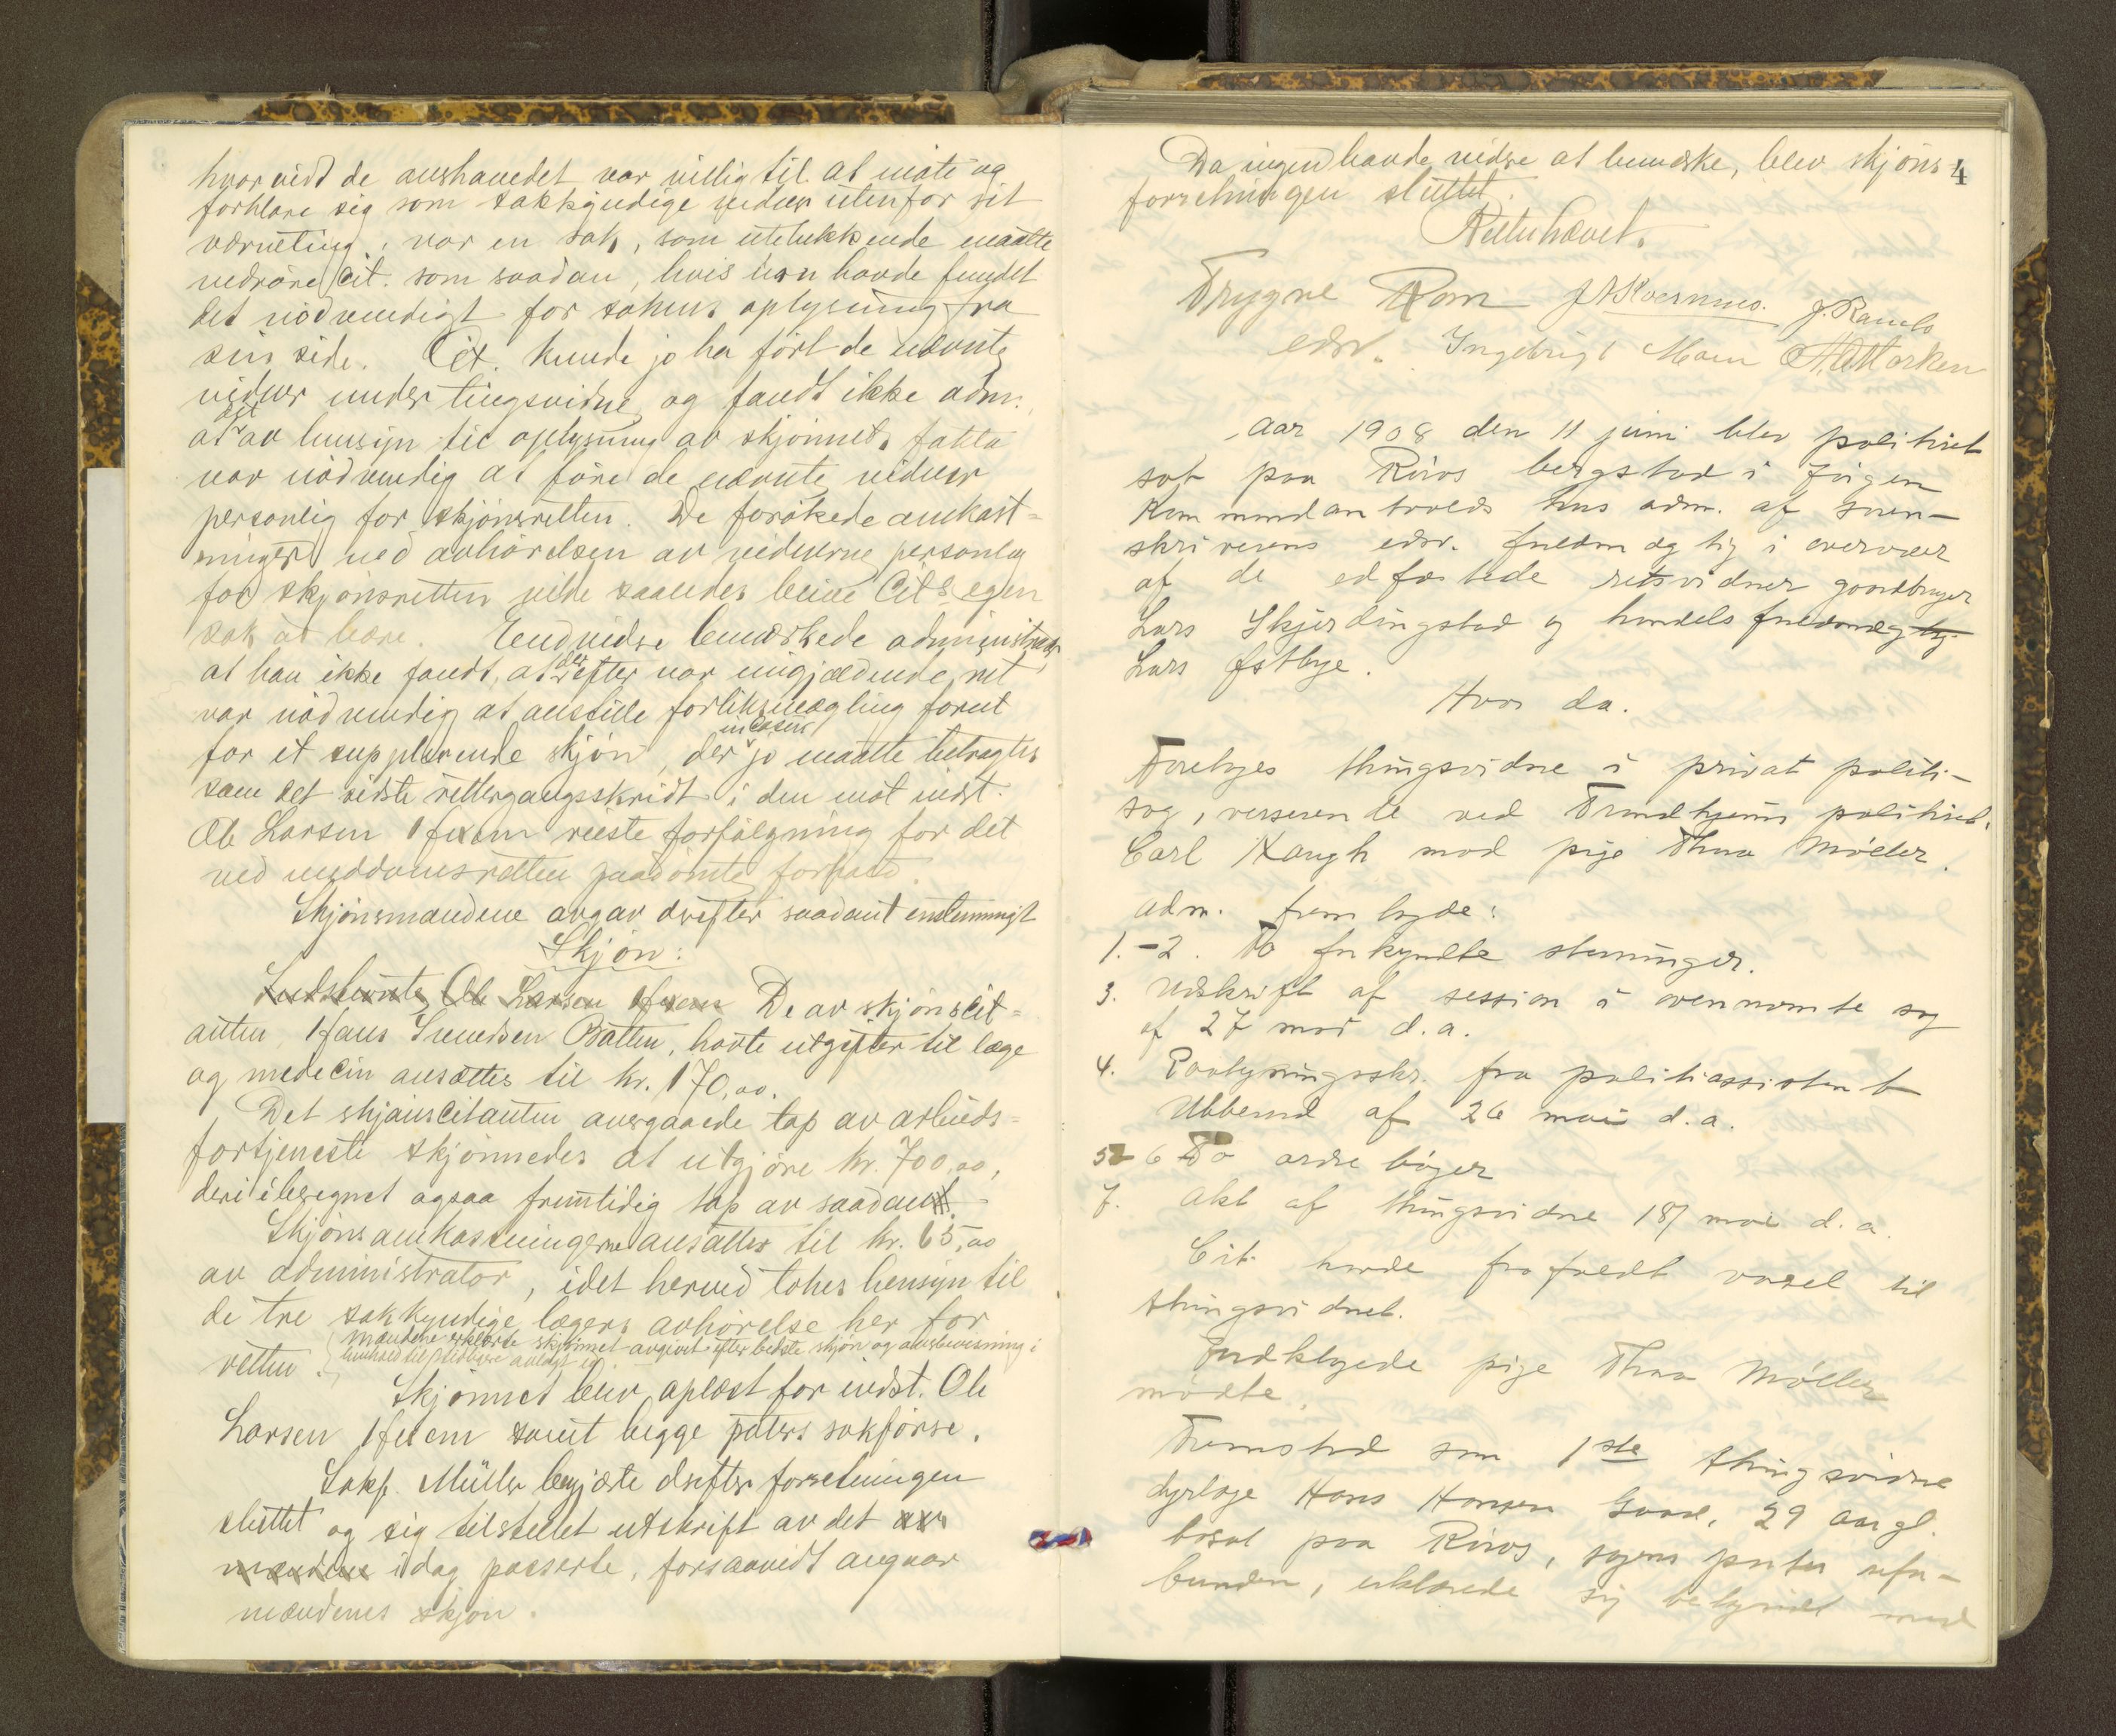 hvorvidt de anshævedet var villig til at møte og
forklare sig som sakkyndige vidner utenfor sit
værneting, var en sak, som utelukkende maatte
vedrøre Cit. som saadan, hvis han havde fundet
det nödvendigt for sakens oplysning fra
sin side. Cit. kunde jo ha fört de nævnte
vidner under tingsvidne og fandt ikke adm.
at det av hensyn til oplysning av skjönnets fakta
var nödvendig at före de nævnte vidner
personlig for skjönsretten. De forökede omkost-
ninger ved avhörelsen av vidnerne personlig
for skjönsretten vilde saaledes blive Cit.s egen
sak at bære. Endvidere bemærkede administrator,
at han ikke fandt, at der efter vor nugjældende ret
var nödvendig at anstille forliksmægling forut
for et supplerende skjön, der in casu jo maatte betragtes
som det sidste rettergangsskridt i den mot indst.
Ole Larsen reiste forfölgning for det
ved meddomsretten paadömte forhold.
Skjönsmændene avgav derefter saadant enstemmigt
Skjön:
De av skjönscit-
anten, Hans Svendsen havte utgifter til læge
og medecin ansættes til kr. 170,00.
Det skjönscitanten overgaaede tap av arbeids-
fortjeneste skjönnedes at utgjöre kr. 700,00,
deri iberegnet ogsaa fremtidig tap av saadan.
Skjönsomkostningerne ansættes til kr. 65,00
av administrator, idet herved tokes hensyn til
de tre sakkyndige lægers avhörelse her for
retten. Mændene erklærte skjönnet avgivet efter bedste skjön og overbevisning i
henhold til tidligere avlagt ed.
Skjönnet blev oplæst for indst. Ole
Larsen samt begge parters sakförere.
Sakf. Müller begjærte derefter forretningen
sluttet og sig tilstillet utskrift av det
idag passerte, forsaavidt angaar
mændenes skjön.
4
Da ingen havde videre at bemærke, blev skjöns-
forretningen sluttet.
Retten hævet.
Trygve Rom J. Ramlo
edsv. Ingebrigt Moen
Aar 1908 den 11 juni blev politiret
sat paa Röros bergstad i Jörgen
Kommandantvolds hus adm. af soren-
skriverens edsv. fuldmægtig i overvær
af de edfæstede retsvidner gaardbruger
Lars Skjerdingstad og handelsfuldmægtig
Lars Østbye.
Hvor da.
Foretoges thingsvidne i privat politi-
sag, verserende ved Trondhjems politiret.
Carl Haugh mod pige Thora Møller.
adm. fremlagde:
1.-2. To forkyndte stevninger.
3. Udskrift af session i ovennævnte sag
af 27 mai d.a.
4. Paalysningsskr. fra politiassistent
af 26 mai d.a.
5-6 To ordrebøger
7. Akt af thingsvidne 18/ mai d.a.
Cit. havde frafaldt varsel til
thingsvidnet.
Indklagede pige Thora Møller
mødte.
Fremstod som 1ste thingsvidne
dyrlæge Hans Hansen 29 aar gl.
bosat paa Röros, sagens parter ufor-
bunden, erklærede sig bekjendt med